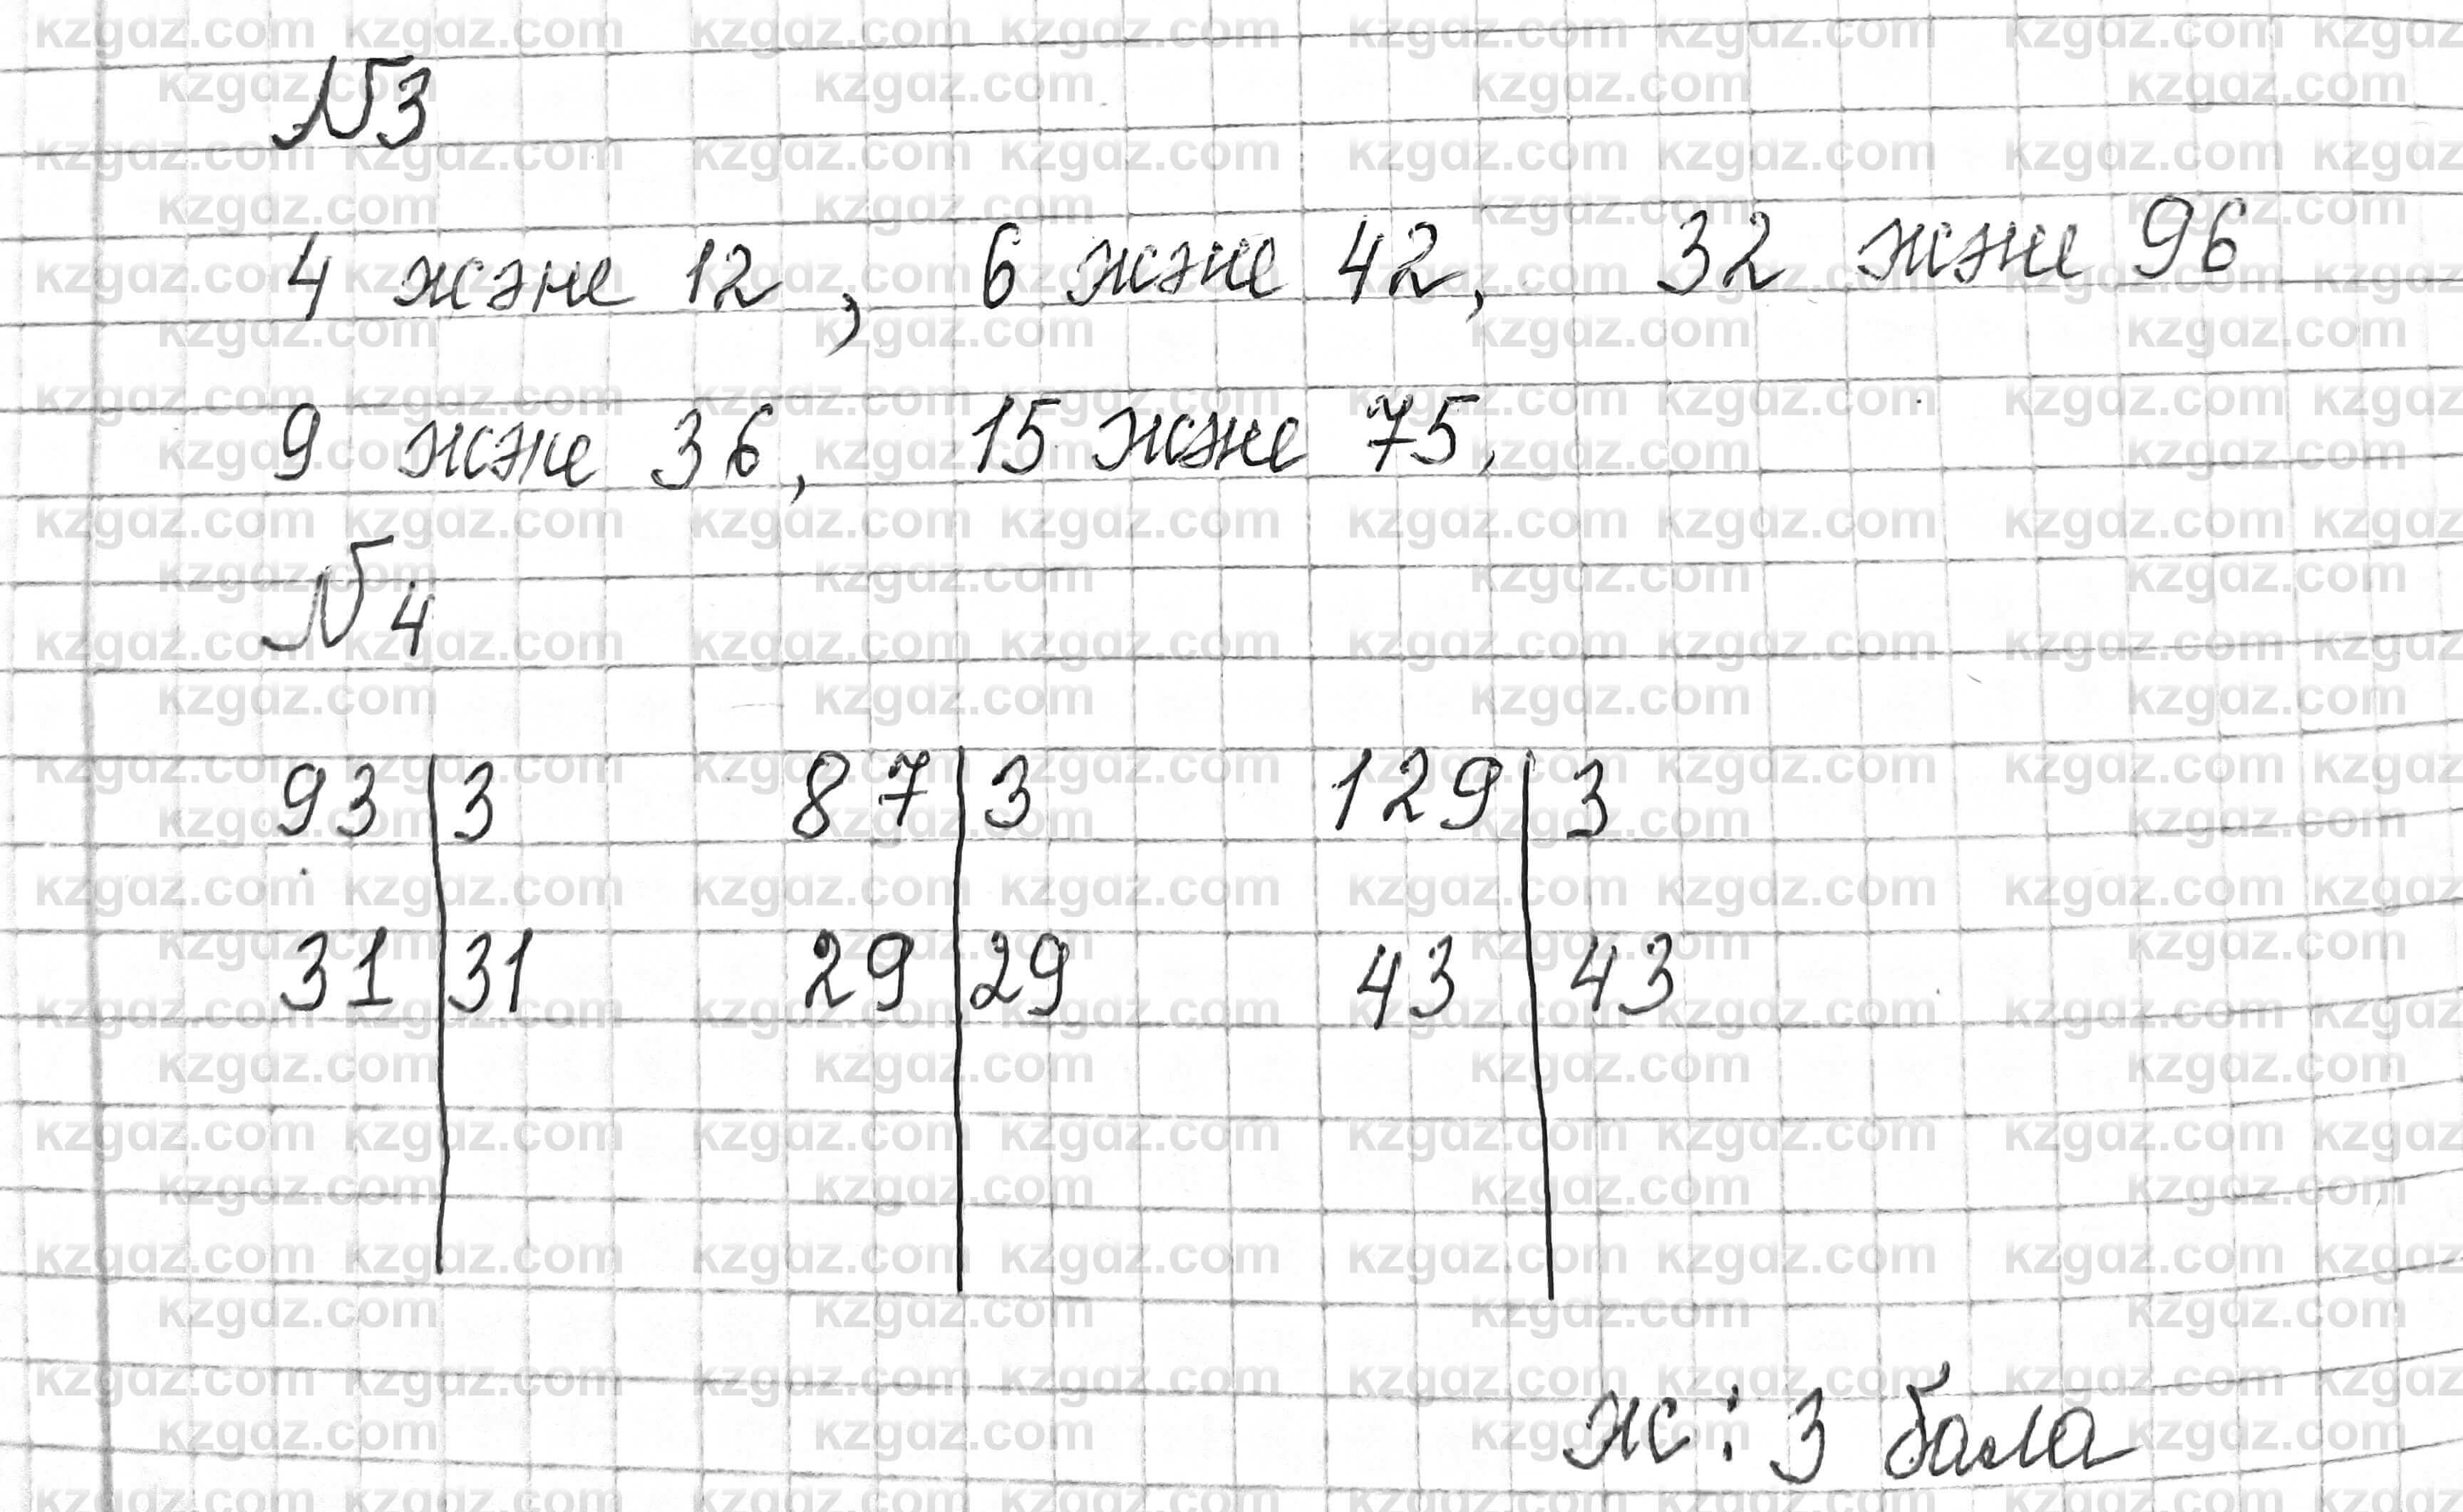 №3
4 және 12, 6 және 42, 32 және 96
9 және 36, 15 және 75,
№4
93 | 3 87 | 3 129 | 3
31 | 31 29 | 29 43 | 43
ж: 3 бала
kzgdz.com